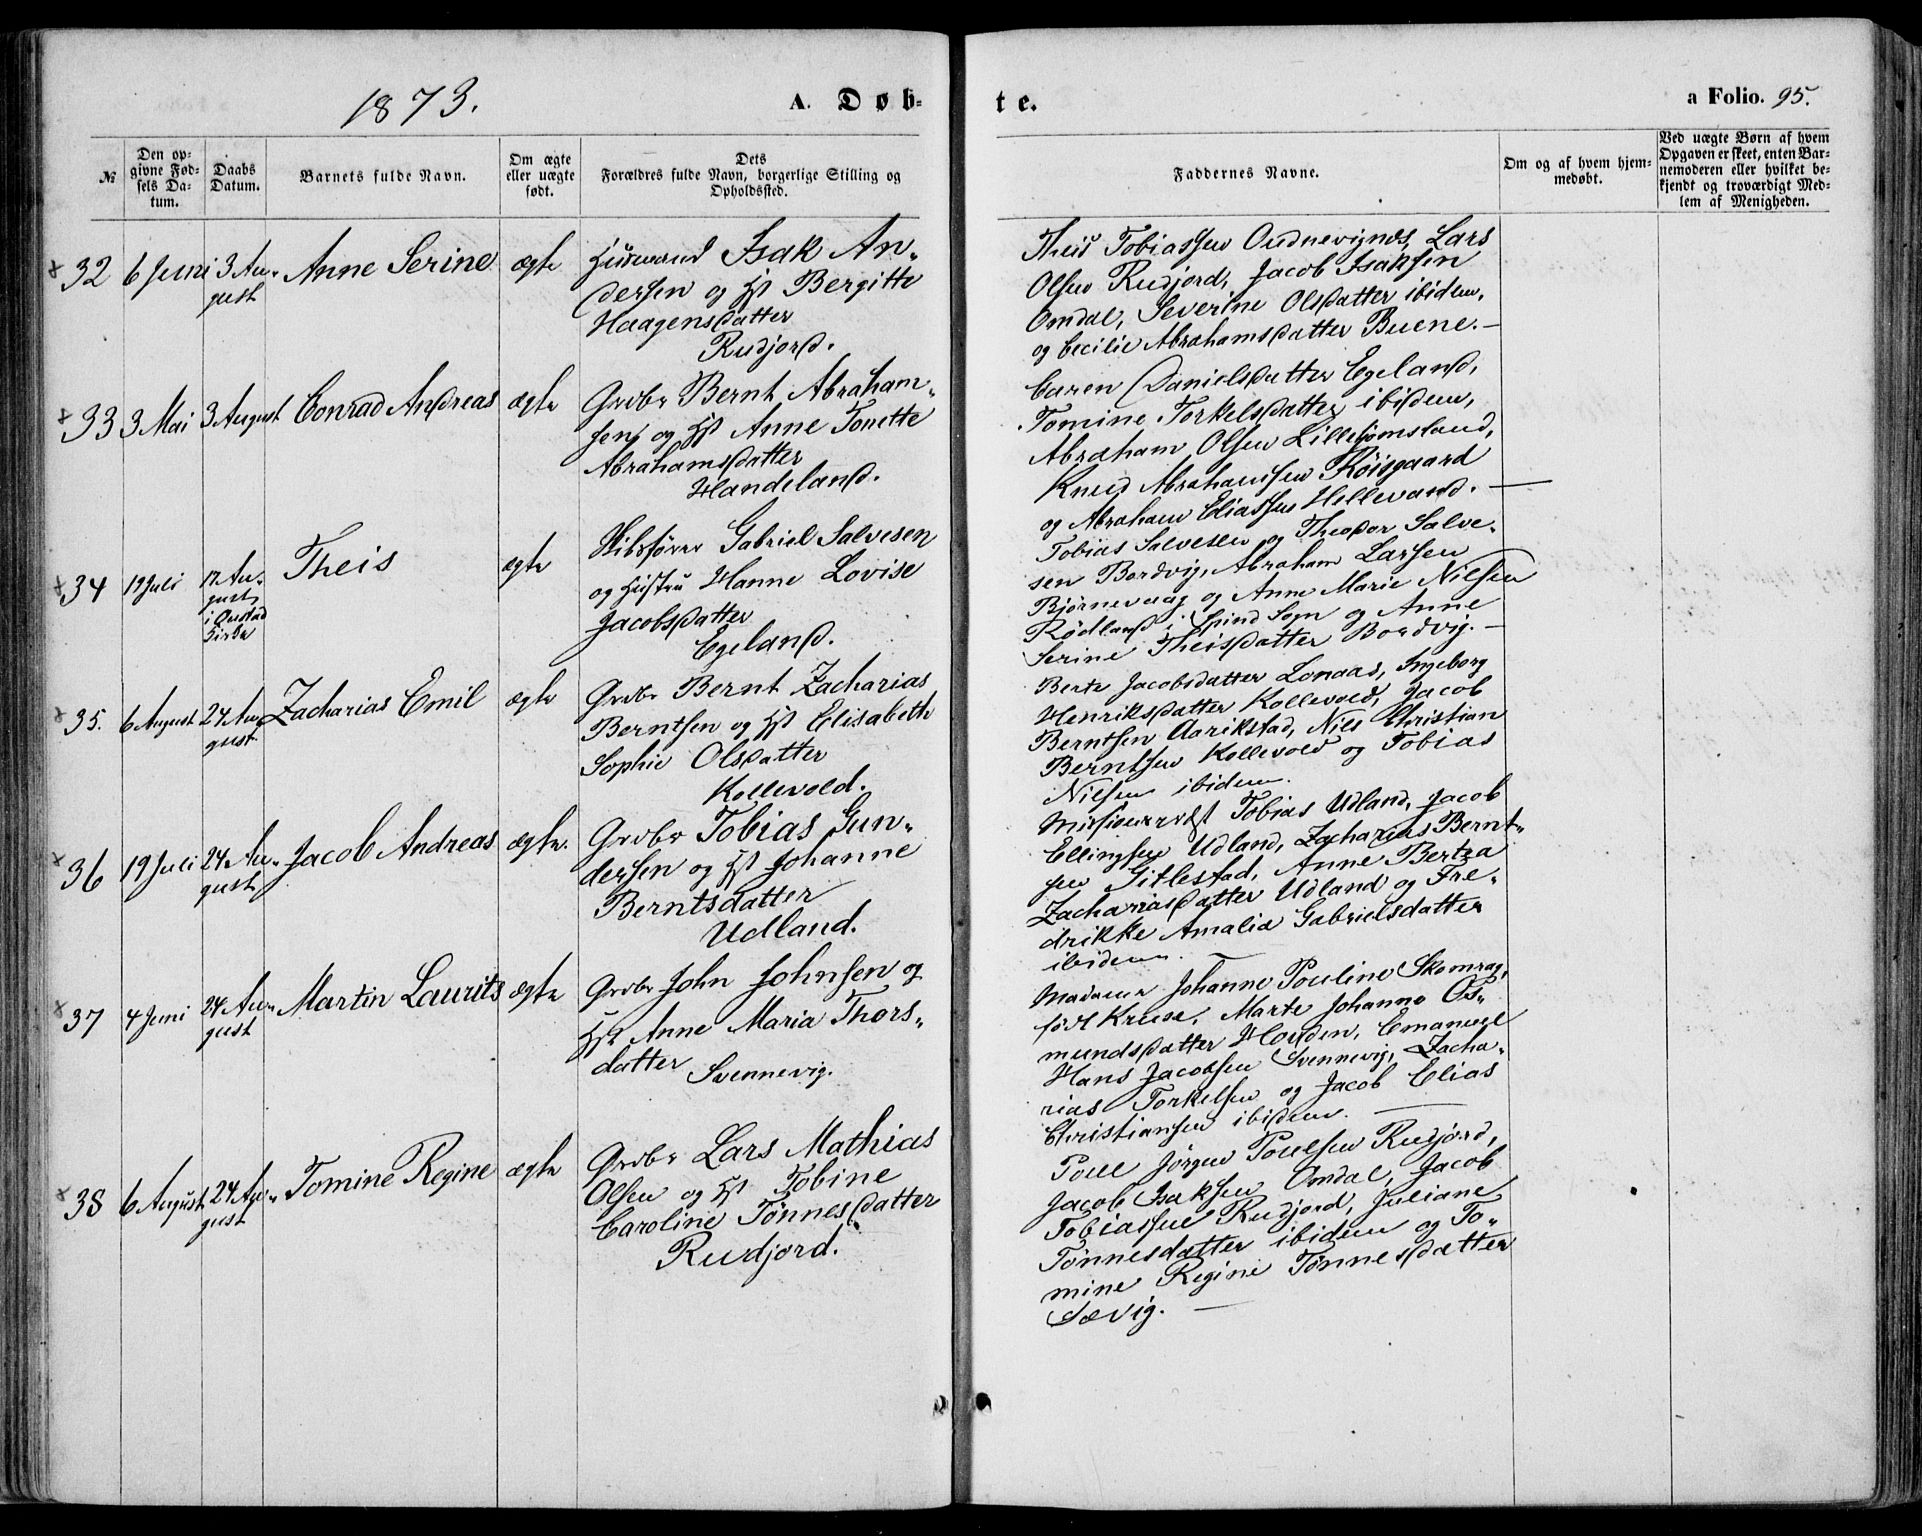 1873.
A. Døb-
te.
a Folio. 95.
№
Den op-
givne Fød-
sels Da-
tum.
Daabs
Datum.
Barnets fulde Navn.
Om ægte
eller uægte
født.
Dets
Forældres fulde Navn, borgerlige Stilling og
Opholdssted.
Faddernes Navne.
Om og af hvem hjem-
medøbt.
Ved uægte Børn af hvem
Opgaven er skeet, enten Bar-
nemoderen eller hvilket be-
kjendt og troværdigt Med-
lem af Menigheden.
32 6 Juni 3 Au-
gust
Anne Serine
ægte
Husmand Isak An-
dersen og Hst Bergitte
Haagensdatter
Rudjord.
Theis Tobiassen Oudnevignes, Lars
Olsen Rudjord, Jacob Isaksen
Omdal, Severine Olsdatter ibidem,
og Cecilie Abrahamsdatter Buene.
33 3 Mai 3 August
Conrad Andreas
ægte
Grdbr Bernt Abraham-
sen og Hst Anne Tonette
Abrahamsdatter
Handeland.
Caren Danielsdatter Egeland,
Tomine Torkelsdatter ibidem,
Abraham Olsen Lillejomsland,
Knud Abrahamsen Røisgaard
og Abraham Eliassen Hellevand.
34 19 Juli 17 Au-
gust
i Oustad
Kirke
Theis
ægte
Skibsfører Gabriel Salvesen
og Hustru Hanne Lovise
Jacobsdatter
Egeland.
Tobias Salvesen og Theodor Salve-
sen Bordvig, Abraham Larsen
Bjørnevaag og Anne Marie Nilsen
Rødland i Spind Sogn og Anne
Serine Theisdatter Bordvig.
35. 6 August 24 Au-
gust
Zacharias Emil
ægte
Grdbr Bernt Zacharias
Berntsen og Hst Elisabeth
Sophie Olsdatter
Kollevold.
Berte Jacobsdatter Lonaas, Ingeborg
Henriksdatter Kollevold, Jacob
Berntsen Aarikstad, Nils Christian
Berntsen Kollevold og Tobias
Nilsen ibidem.
36 19 Juli 24 Au-
gust
Jacob Andreas
ægte.
Grdbr Tobias Gun-
dersen og Hst Johanne
Berntsdatter
Udland.
Tobias Udland, Jacob
Ellingsen Udland, Zacharias Bernt-
sen Gitlestad, Anne Bertea
Zachariasdatter Udland og Fre-
drikke Amalia Gabrielsdatter
ibidem.
37 4 Juni 24 Au-
gust
Martin Laurits
ægte
Grdbr John Johnsen og
Hst Anne Maria Thors-
datter
Svennevig.
Madame Johanne Pouline Skomrag,
født Kruse, Marte Johanne Os-
mundsdatter Houden, Emanuel
Hans Jacobsen Svennevig, Zacha-
rias Torkelsen og Jacob Elias
Christiansen ibidem.
38 6 August 24 Au-
gust
Tomine Regine
ægte
Grdbr Lars Mathias
Olsen og Hst Tobine
Caroline Tønnesdatter
Rudjord.
Poul Jørgen Poulsen Rudjord,
Jacob Isaksen Omdal, Jacob
Tobiassen Rudjord, Juliane
Tønnesdatter ibidem og To-
mine Regine Tønnesdatter
Sævig.